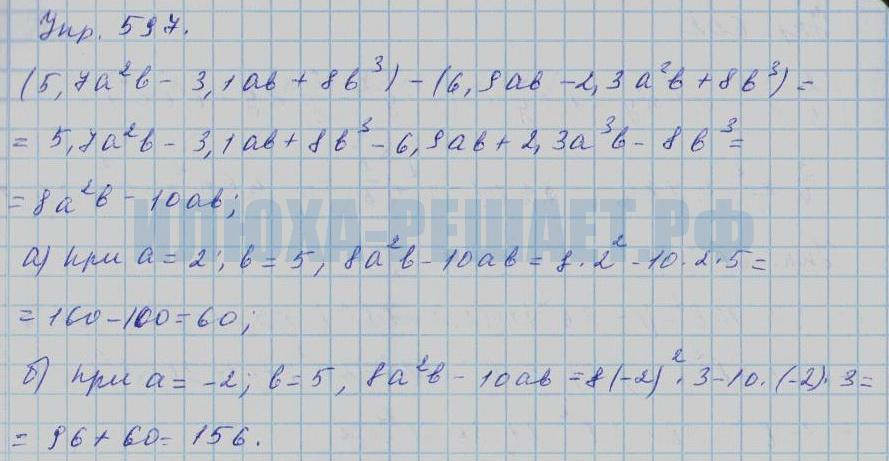 Упр. 597.
(5,7a²b - 3,1ab + 8b³) - (6,9ab - 2,3a²b + 8b³) =
= 5,7a²b - 3,1ab + 8b³ - 6,9ab + 2,3a³b - 8b³ =
= 8a²b - 10ab;
ИЛЮХА-РЕШАЕТ.РФ
а) при a = 2; b = 5, 8a²b - 10ab = 8·2² - 10·2·5 =
= 160 - 100 = 60;
б) при a = -2; b = 5, 8a²b - 10ab = 8(-2)²·3 - 10·(-2)·3 =
= 96 + 60 = 156.